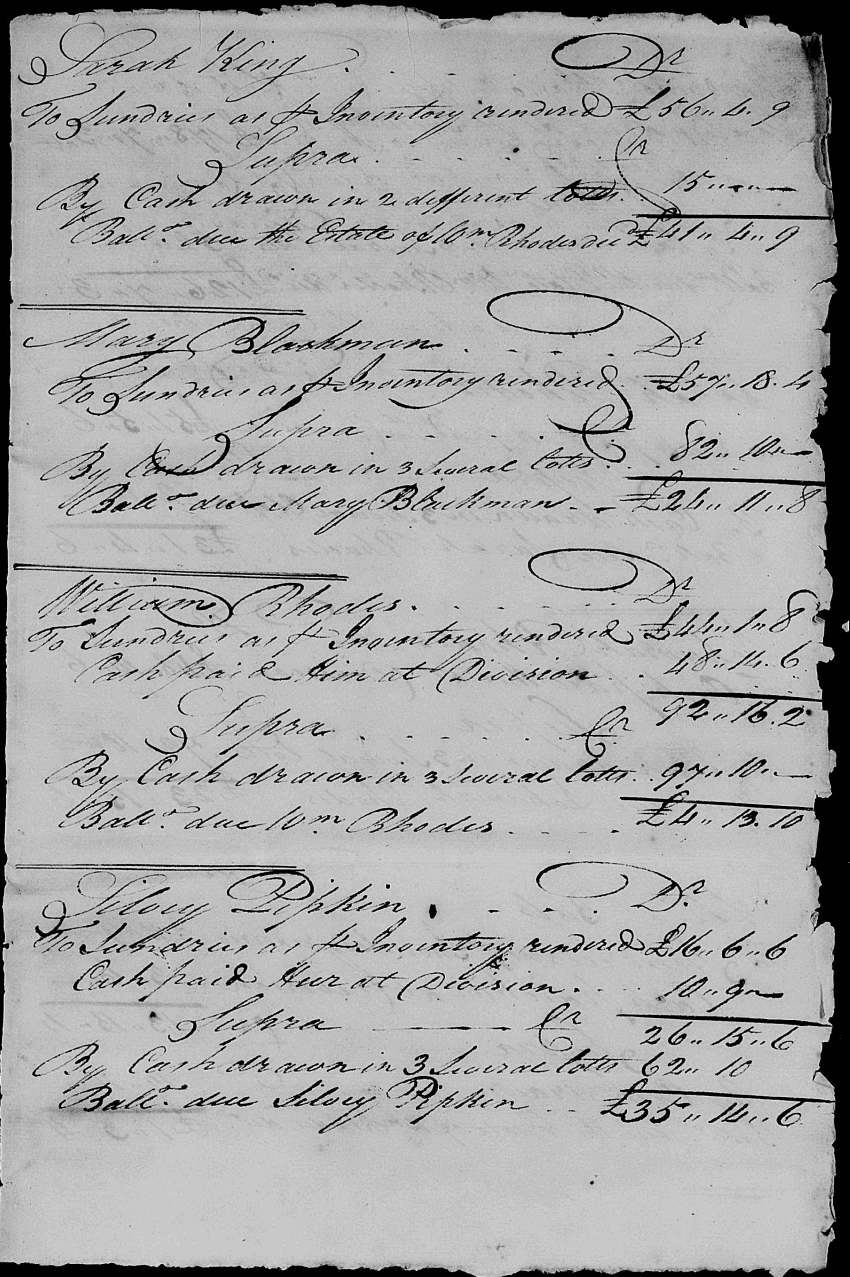 Sarah King . . . . . Dr
To Sundries as pr Inventory rendered £56" 4 " 9
Supra . . . . . Cr
By Cash drawn in 2 different Lotts . 15 " — " —
Ballce. due the Estate of Wm. Rhodes decd £41 " 4 " 9
Mary Blackman . . . . . Dr
To Sundries as pr Inventory rendered . £57 " 18 . 4
Supra . . . . . Cr
By Cash drawn in 3 Several Lotts . . 82 " 10 " —
Ballce. due Mary Blackman . . £24 " 11 " 8
William Rhodes . . . . . Dr
To Sundries as pr Inventory rendered £44 " 1 " 8
Cash paid Him at Division . . 48 " 14 . 6
92 " 16 . 2
Supra . . . . . Cr
By Cash drawn in 3 Several Lotts . . 97 " 10 " —
Ballce. due Wm Rhodes . . . . £4 " 13 . 10
Silvey Pipkin . . . . Dr
To Sundries as pr Inventory rendered £16 " 6 " 6
Cash paid Her at Division . . . 10 " 9 " —
Supra — — Cr 26 " 15 " 6
By Cash drawn in 3 Several Lotts 62 " 10
Ballce. due Silvey Pipkin . . £35 " 14 " 6